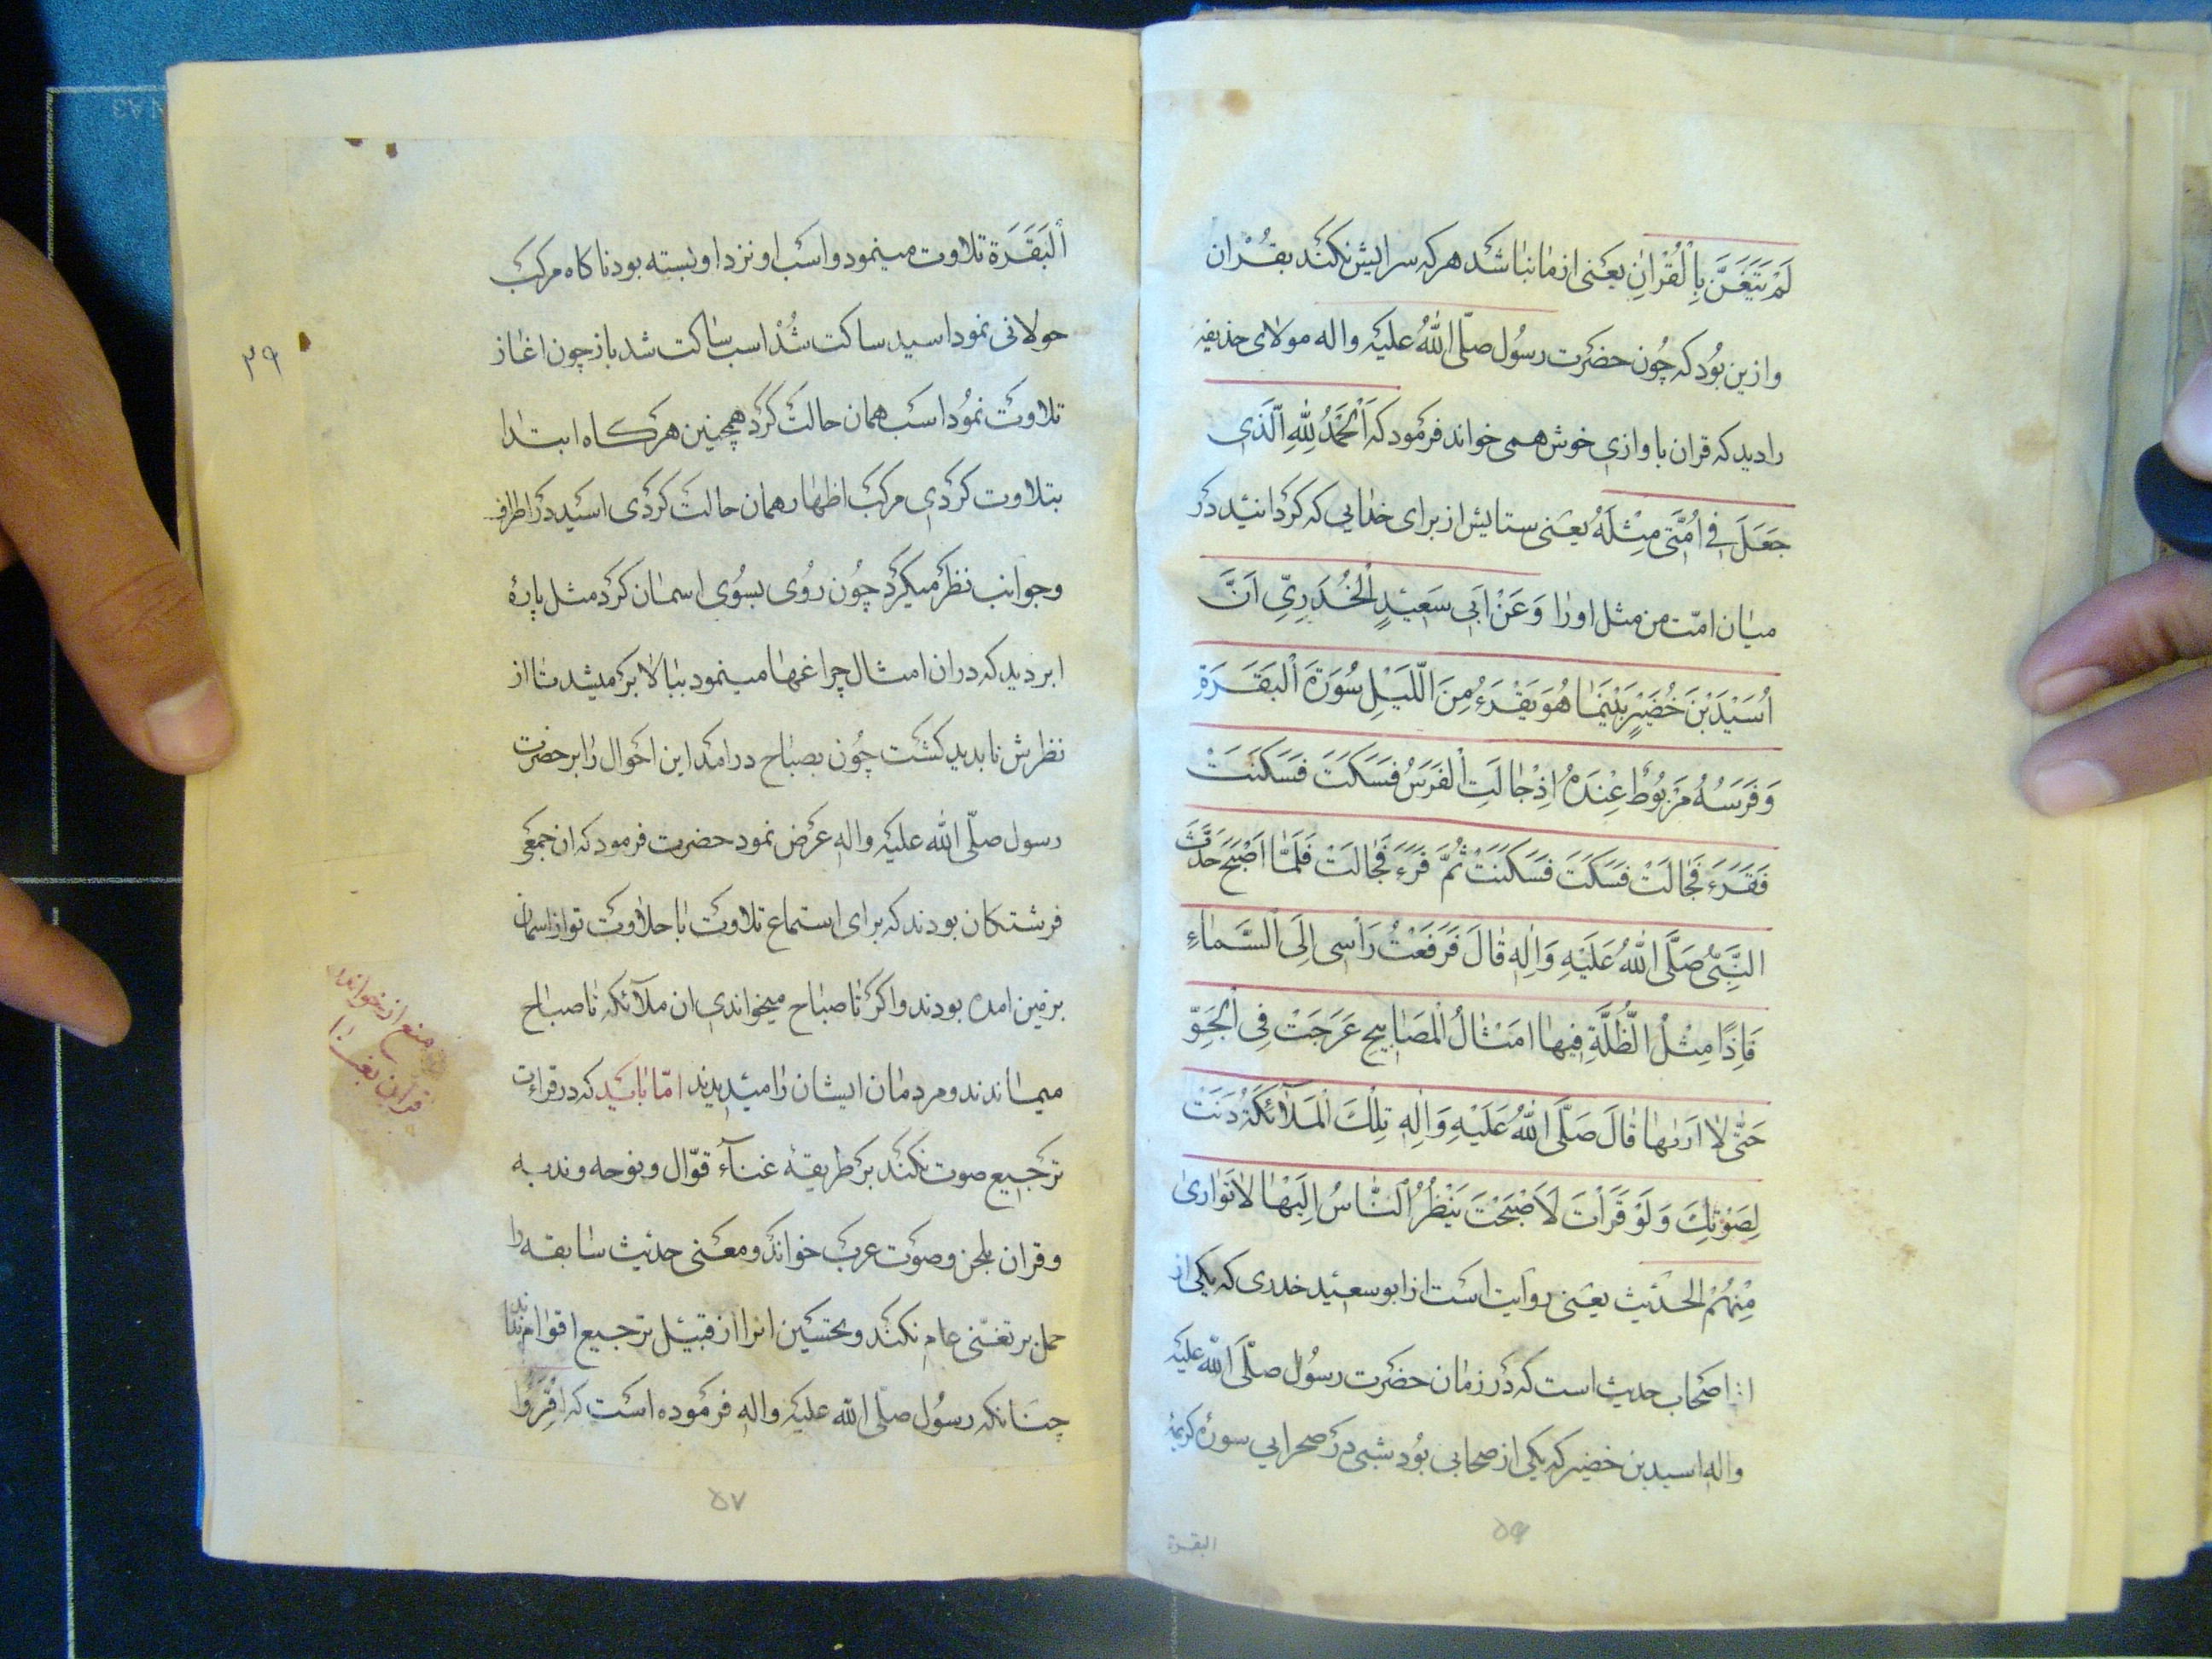 لَمْ يَتَغَنَّ بِالْقُرْانِ يعنى از ما نباشد هر که سرایش نکند بقُرْان
و ازین بُود که چُون حضرت رسُول صلّى اللّٰهُ علیْه و اله مولای حذیفه
را دید که قران باوازی خوش همی خواند فرمُود که اَلْحَمْدُ لِلّٰهِ الَّذی
جَعَلَ فِى اُمَّتى مِثْلَهُ یعنى ستایش از برای خدایی که کردانید در
میان امّت من مثل اورا وَ عَنْ اَبى سَعیدٍ الْخُدَرِىِّ اَنَّ
اُسَیْدَ بْنَ خُضَیْرٍ بَیْنَمٰا هُوَ یَقْرَءُ مِنَ الَّلیْلِ سُورَةَ الْبَقَرَةِ
وَ فَرَسُهُ مَرْبُوطٌ عِنْدَهُ اِذْ جٰالَتِ الْفَرَسُ فَسَکَتَ فَسَکَنَتْ
فَقَرَءَ فَجٰالَتْ فَسَکَتَ فَسَکَنَتْ ثُمَّ قَرَءَ فَجٰالَتْ فَلَمّٰا اَصْبَحَ حَدَّثَ
النَّبِىَّ صَلَّى اللّٰهُ عَلَیْهِ وَ اٰلِهِ قٰالَ فَرَفَعْتُ رَاْسى اِلَى السَّمٰاءِ
فَاِذًا مِثْلُ الظُّلَّةِ فیهٰا امَثْالُ الْمَصٰابیحِ عَرَجَتْ فِى الْجَوِّ
حَتّٰى لاٰ اَرٰیهٰا قٰالَ صَلَّى اللّٰهُ عَلَیْهِ وَ اٰلِهِ تِلْكَ الْمَلآئِکَةُ دَنَتْ
لِصَوْتِكَ وَ لَوْ قَرَاْتَ لَاَصْبَحْتَ یَنْظُرُ النّٰاسُ اِلَیْهٰا لاٰ تَوٰارىٰ
مِنْهُمْ الحدیث یعنى روایت است از ابو سعید خدری که یکی از
اصحاب حدیث است که در زمان حضرت رسُول صلّى اللّٰه علیْه
و اله اسید بن خضیر که یکی از صحابی بُود شبی در صحرایی سورهٔ کریمهٔ
البقرة
۵۶
اَلبَقَرَة تلاوت مینمود و اسب او نزد او بسته بود ناکاه مرکب
جولانی نمود اسید ساکت شُدْ اسب ساکت شد باز چون اغاز
تلاوت نمُود اسب همان حالت کرد همچنین هر کاه ابتدا
بتلاوت کردی مرکب اظهار همان حالت کردی اسید در اطراف
و جوانب نظر میکرد چُون رُوی بسُوی اسمان کرد مثل پارهٔ
ابر دید که در ان امثال چراغها مینمود ببالا بر میشد تا از
نظرش نابدید کشت چُون بصباح درامد این احوال را بر حضرت
رسول صلّى اللّٰه علیْه و اله عرض نمود حضرت فرمود که ان جمعی
فرشتکان بودند که برای استماع تلاوت با حلاوت تو از اسمان
بر زمین امده بودند و اکر تا صباح میخواندی ان ملآئکه تا صباح
میماندند و مردمان ایشان را میدیدند امّا باید که در قراءت
ترجیع صوت نکند بر طریقهٔ غنآء قوّال و بنوحه و ندبه
و قران بلحن و صوت عرب خواند و معنى حدیث سابقه را
حمل بر تغنّی عام نکند و تحسین انرا از قبیل ترجیع اقوام نداند
چنانکه رسُول صلّى اللّٰه علیْه و اله فرمُوده است که اِقْرَؤا
منع از خواندن
قران بغنا
۳۹
۵۷